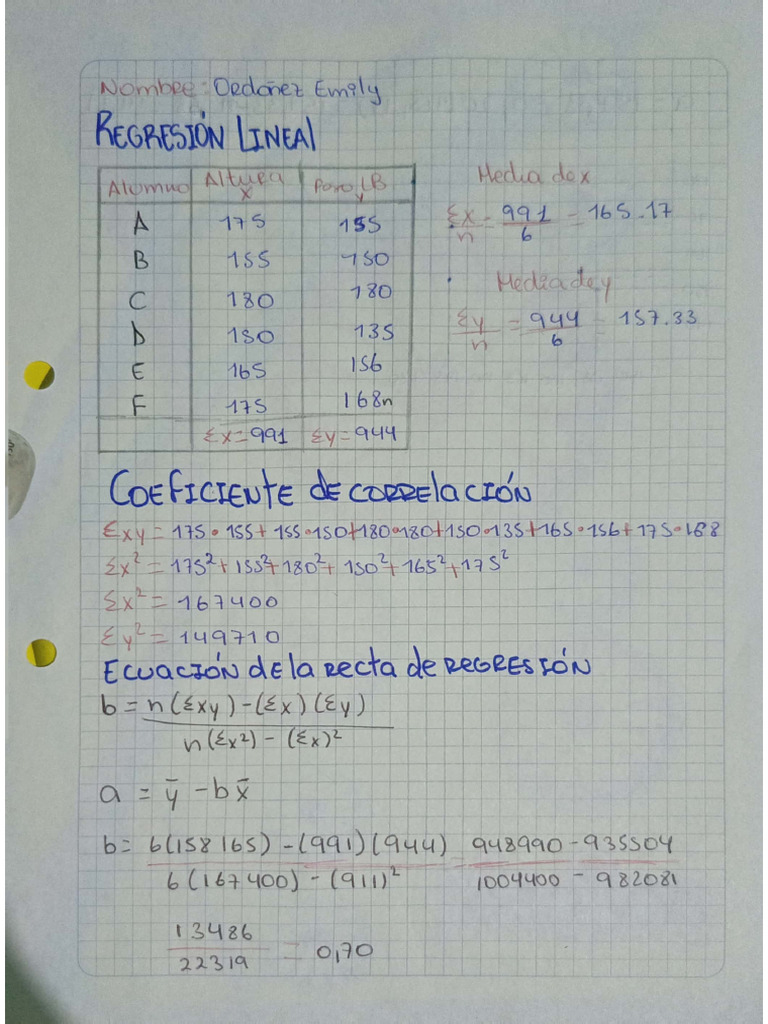 Nombre: Ordoñez Emily
REGRESIÓN LINEAL
Alumno Altura x Peso LB y
A 175 155
B 155 150
C 180 180
D 150 135
E 165 156
F 175 168n
Σx=991 Σy=944
Media de x
Σx/n = 991/6 = 165.17
Media de y
Σy/n = 944/6 = 157.33
COEFICIENTE DE CORRELACIÓN
Σxy = 175•155+155•150+180•180+150•135+165•156+175•168
Σx² = 175²+155²+180²+150²+165²+175²
Σx² = 167400
Σy² = 149710
ECUACIÓN DE LA RECTA DE REGRESIÓN
b = n(Σxy)-(Σx)(Σy) / n(Σx²)-(Σx)²
a = ȳ - bx̄
b = 6(158165)-(991)(944) / 6(167400)-(911)² = 948990-935504 / 1004400-982081
13486 / 22319 = 0,70